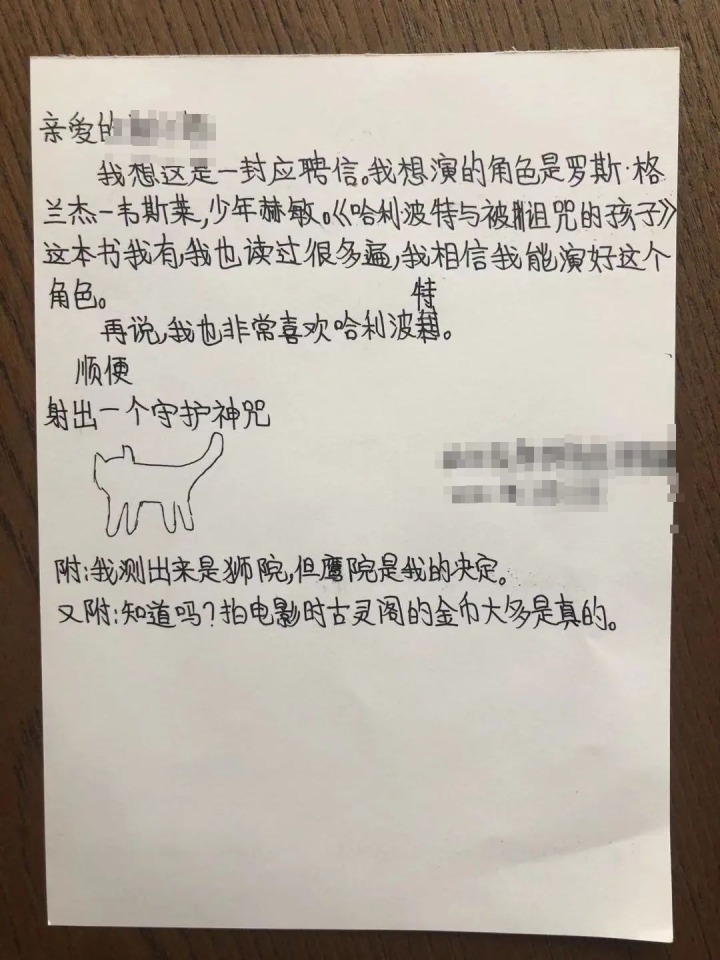 亲爱的
我想这是一封应聘信。我想演的角色是罗斯·格
兰杰-韦斯莱,少年赫敏。《哈利波特与被诅咒的孩子》
这本书我有,我也读过很多遍,我相信我能演好这个
角色。
特
再说,我也非常喜欢哈利波。
顺便
射出一个守护神咒
附:我测出来是狮院,但鹰院是我的决定。
又附:知道吗?拍电影时古灵阁的金币大多是真的。